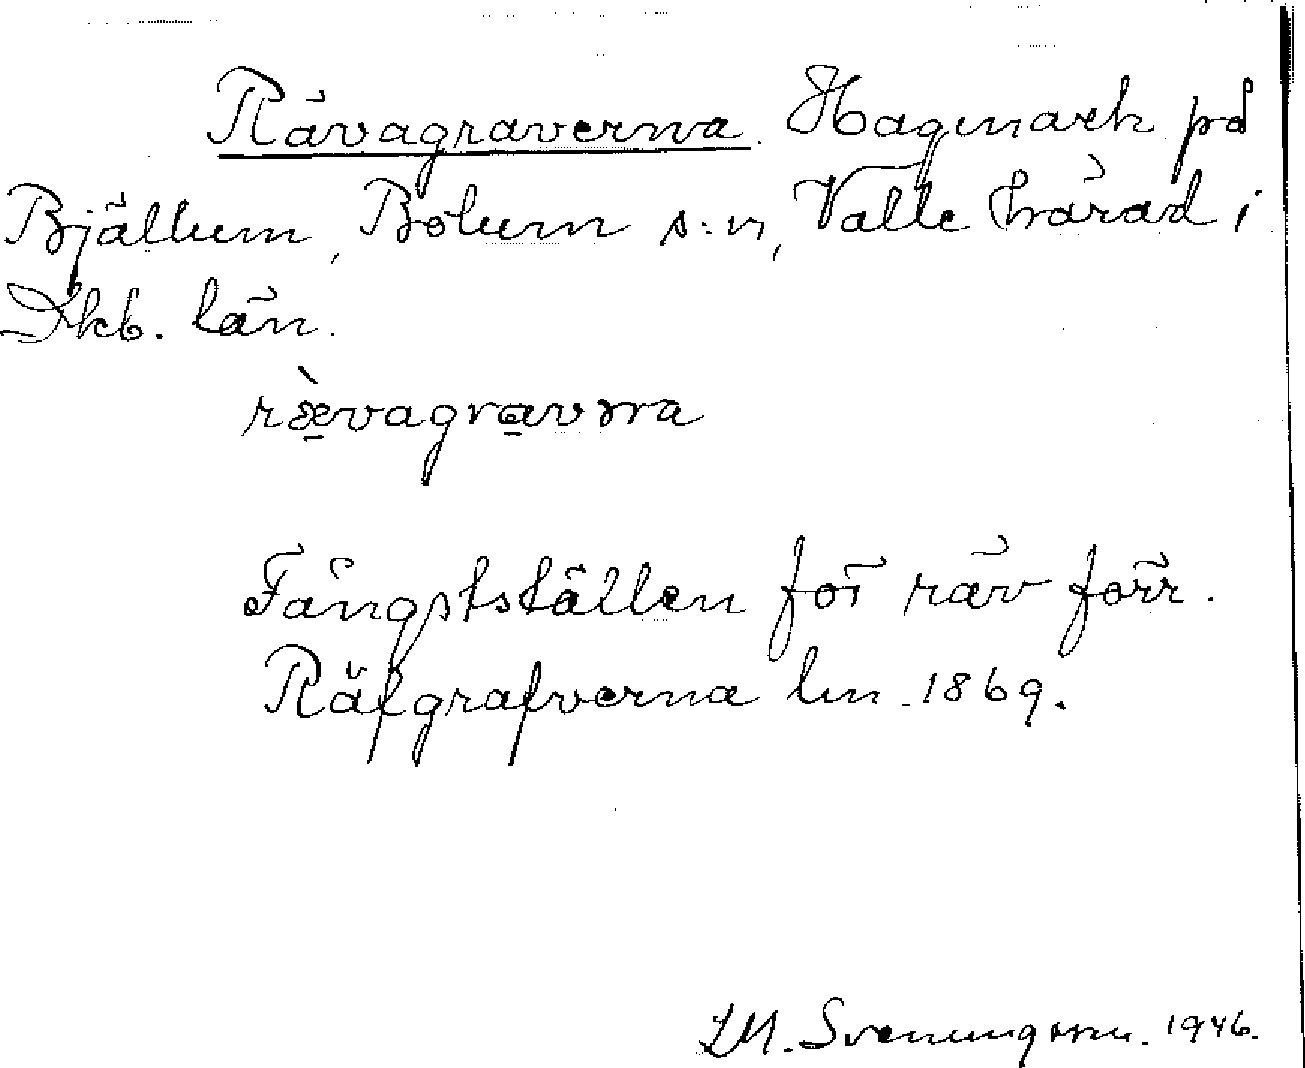 Rävagraverna. Hagmark på
Bjällum, Bolum s:n, Valle härad i
Skb. län.
rævagravɷrna
Fångstställen för räv förr.
Räfgrafverna lm. 1869.
I.M. Svenungsson. 1946.